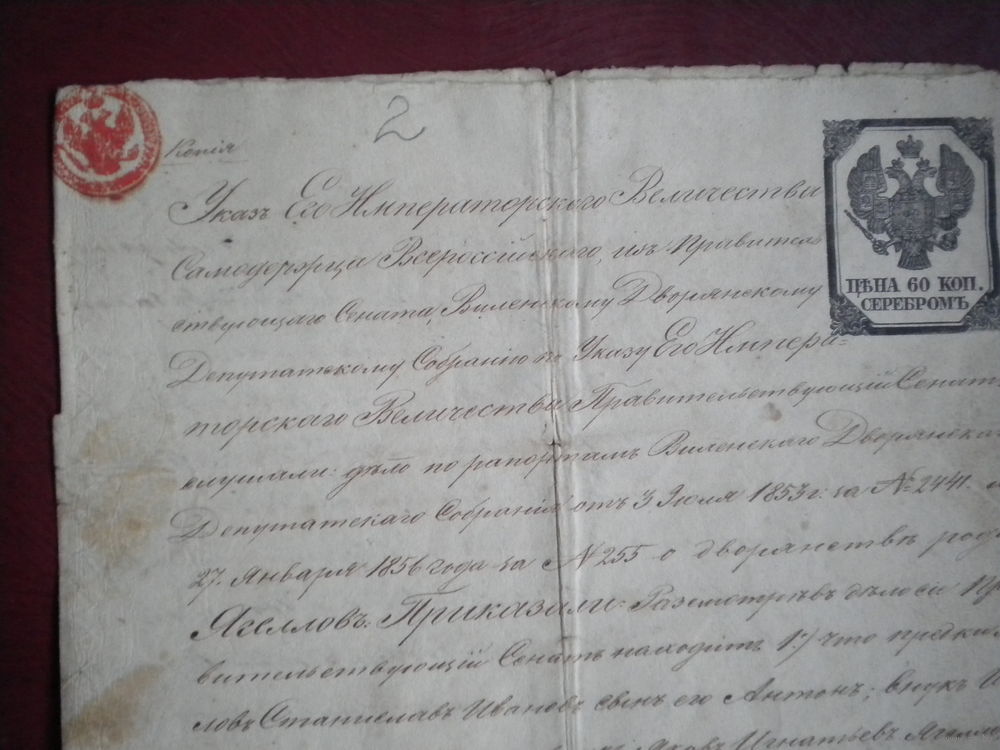 2
Копія
Указъ Его Императорскаго Величества
Самодержца Всероссійскаго, изъ Правитель
ствующаго Сената, Виленскому Дворянскому
Депутатскому Собранію по Указу Его Импера-
торскаго Величества Правительствующій Сенатъ
слушали: дѣло по рапортамъ Виленскаго Дворянскаго
Депутатскаго Собранія отъ 3 Іюля 1853 г: за № 2441. и
27. Января 1856 года за № 255 о дворянствѣ рода
Ягелловъ. Приказали: Разсмотрѣвъ дѣло си Пра
вительствующій Сенатъ находитъ 1.) что предки
ловъ Станиславъ Ивановъ сынъ его Антонъ; внукъ
Яковъ Игнатьевъ
ЦѢНА 60 КОП.
СЕРЕБРОМЪ